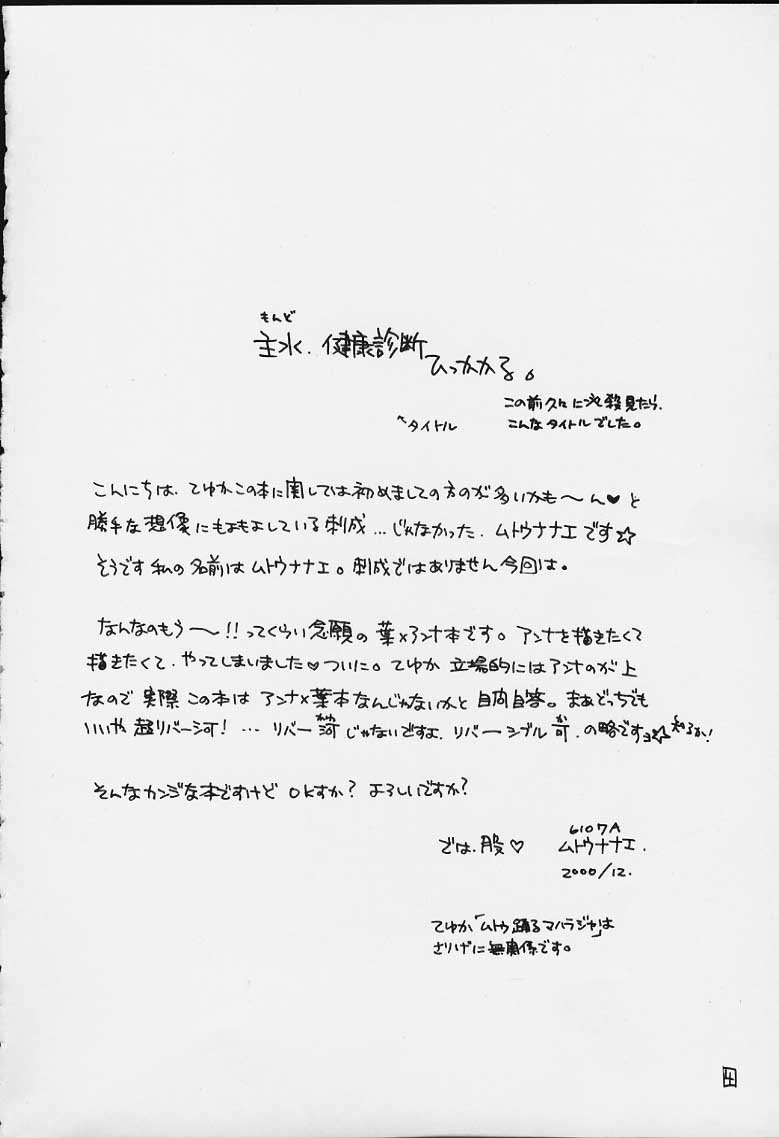 もんど
主水、健康診断
ひっかかる。
この前久々に必殺見たら、
こんなタイトルでした。
↖タイトル
こんにちは、てゆかこの本に関しては初めましての方のが多いかも〜ん♥と
勝手な想像にもよもよしている刺成…じゃなかった、ムトウナナエです☆
そうです私の名前はムトウナナエ。刺成ではありません今回は。
なんなのもう〜!!ってくらい念願の葉×アンナ本です。アンナを描きたくて
描きたくて、やってしまいました♥ついに。てゆか 立場的にはアンナのが上
なので 実際 この本は アンナ×葉本なんじゃないかと 自問自答。まあどっちでも
いいや 超リバー河! … リバー河じゃないですよ、リバーシブル可、の略ですヨ☆知るか!
そんなカンジな本ですけど OKすか? よろしいですか?
では、股♡
6107A
ムトウナナエ.
2000/12.
てゆか「ムトウ踊るマハラジャ」は
さりげに無関係です。
4